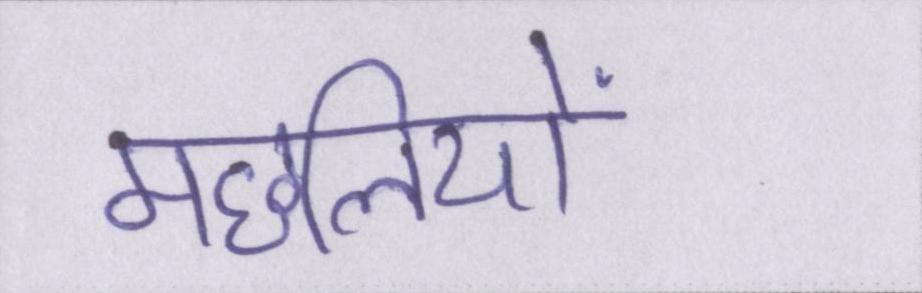 मछलियों